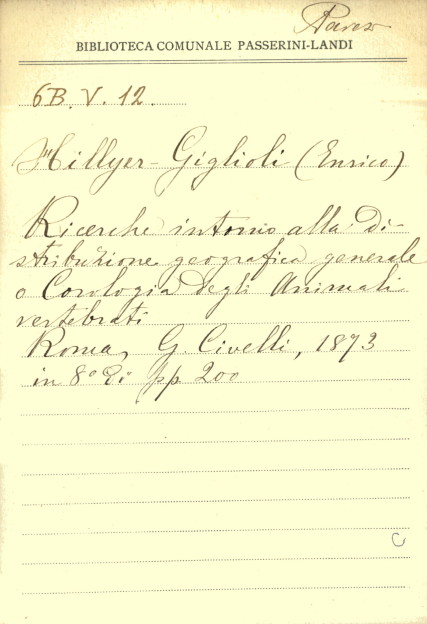 BIBLIOTECA COMUNALE PASSERINI-LANDI
6B. V. 12.
Hillyer-Giglioli (Enrico)
Ricerche intorno alla di-
stribuzione geografica generale
o Corologia degli Animali
vertebrati
Roma, G. Civelli, 1873
in 8° pp. 200
C